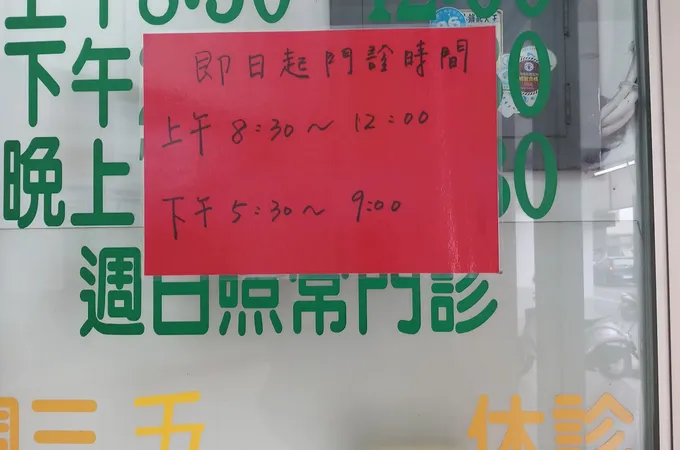 上午 8:30 12:00
即日起門診時間
下午
上午 8:30～12:00
晚上
下午 5:30～9:00
週日照常門診
週三 五 休診